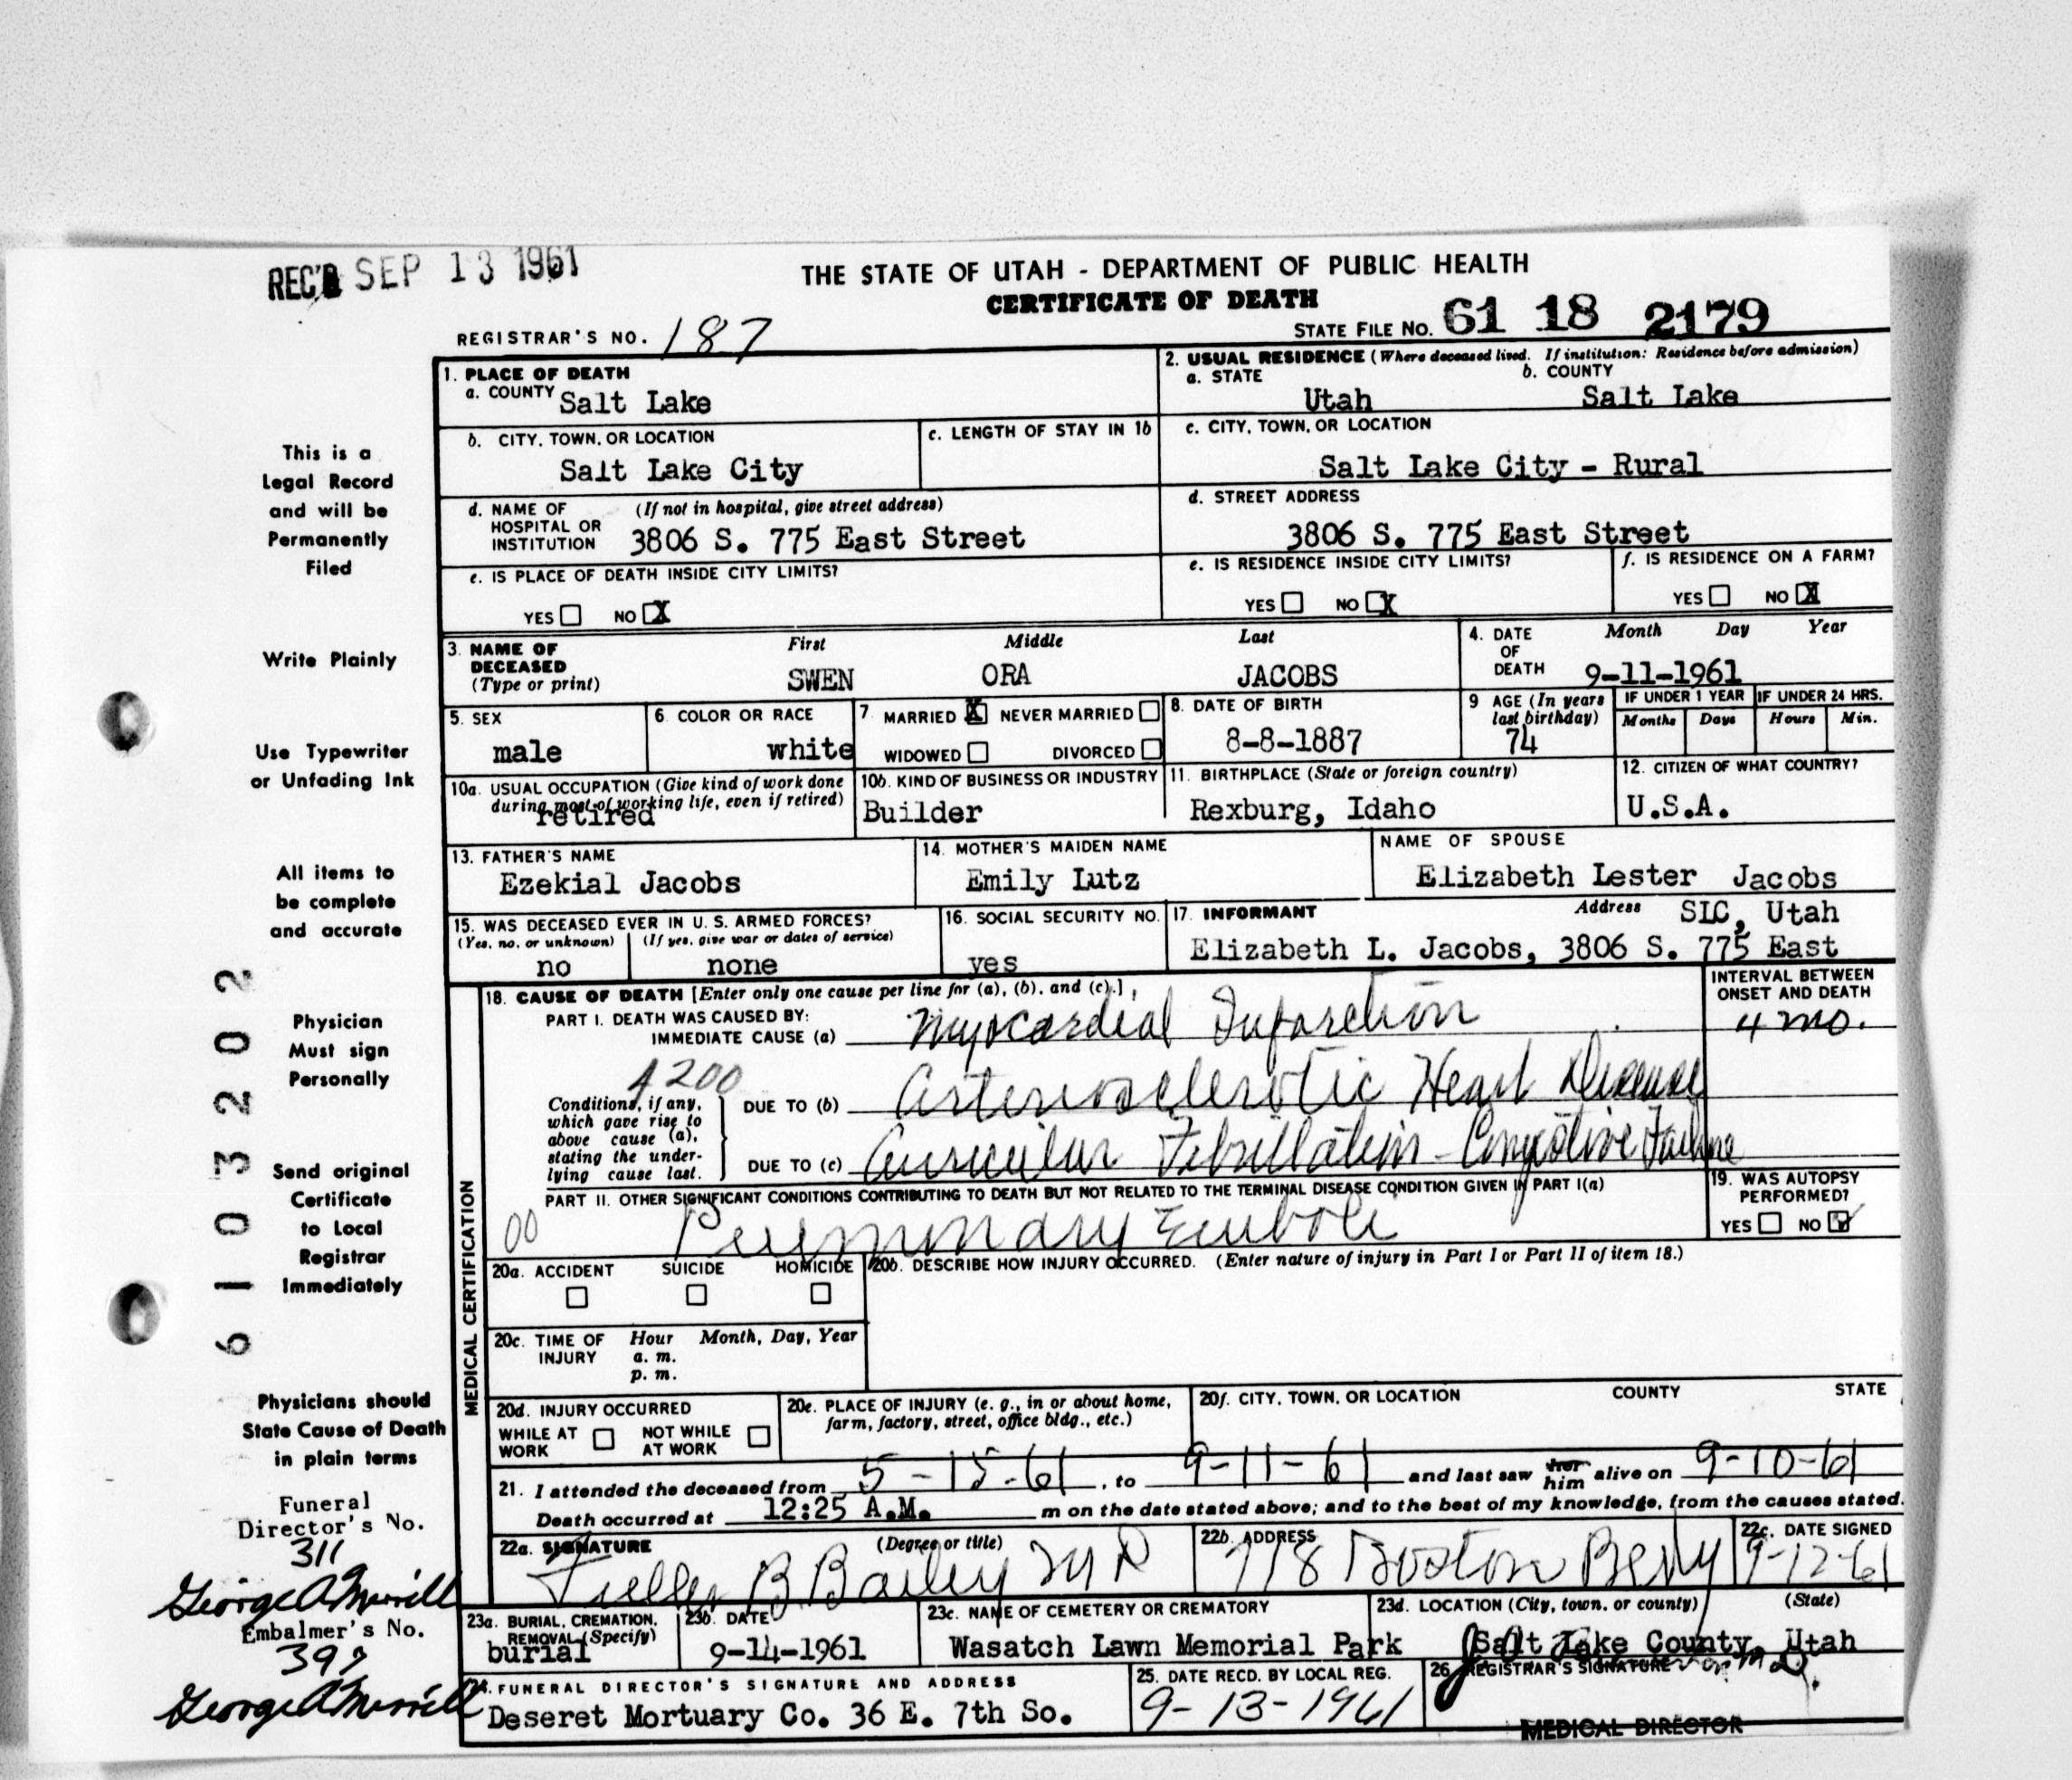 REC'D SEP 13 1961
THE STATE OF UTAH - DEPARTMENT OF PUBLIC HEALTH
CERTIFICATE OF DEATH
REGISTRAR'S NO. 187
STATE FILE NO. 61 18 2179
This is a
Legal Record
and will be
Permanently
Filed
Write Plainly
Use Typewriter
or Unfading Ink
All items to
be complete
and accurate
Physician
Must sign
Personally
Send original
Certificate
to Local
Registrar
Immediately
Physicians should
State Cause of Death
in plain terms
Funeral
Director's No.
311
George A Merrill
Embalmer's No.
397
George A Merrill
6103202
1. PLACE OF DEATH
a. COUNTY Salt Lake
2. USUAL RESIDENCE (Where deceased lived. If institution: Residence before admission)
a. STATE Utah
b. COUNTY Salt Lake
b. CITY, TOWN, OR LOCATION
Salt Lake City
c. LENGTH OF STAY IN 1b
c. CITY, TOWN, OR LOCATION
Salt Lake City - Rural
d. NAME OF HOSPITAL OR INSTITUTION (If not in hospital, give street address)
3806 S. 775 East Street
d. STREET ADDRESS
3806 S. 775 East Street
e. IS PLACE OF DEATH INSIDE CITY LIMITS?
YES NO X
e. IS RESIDENCE INSIDE CITY LIMITS?
YES NO X
f. IS RESIDENCE ON A FARM?
YES NO X
3. NAME OF DECEASED (Type or print)
First Middle Last
SWEN ORA JACOBS
4. DATE OF DEATH Month Day Year
9-11-1961
5. SEX
male
6. COLOR OR RACE
white
7. MARRIED X NEVER MARRIED
WIDOWED DIVORCED
8. DATE OF BIRTH
8-8-1887
9 AGE (In years last birthday)
74
IF UNDER 1 YEAR
Months Days
IF UNDER 24 HRS.
Hours Min.
10a. USUAL OCCUPATION (Give kind of work done
during most of working life, even if retired)
retired
10b. KIND OF BUSINESS OR INDUSTRY
Builder
11. BIRTHPLACE (State or foreign country)
Rexburg, Idaho
12. CITIZEN OF WHAT COUNTRY?
U.S.A.
13. FATHER'S NAME
Ezekial Jacobs
14. MOTHER'S MAIDEN NAME
Emily Lutz
NAME OF SPOUSE
Elizabeth Lester Jacobs
15. WAS DECEASED EVER IN U. S. ARMED FORCES?
(Yes, no, or unknown) (If yes, give war or dates of service)
no none
16. SOCIAL SECURITY NO.
yes
17. INFORMANT Address SLC, Utah
Elizabeth L. Jacobs, 3806 S. 775 East
MEDICAL CERTIFICATION
18. CAUSE OF DEATH [Enter only one cause per line for (a), (b), and (c).]
PART I. DEATH WAS CAUSED BY:
IMMEDIATE CAUSE (a) Myocardial Infarction
INTERVAL BETWEEN
ONSET AND DEATH
4 mo.
4200
Conditions, if any,
which gave rise to
above cause (a),
stating the under-
lying cause last.
DUE TO (b) Arteriosclerotic Heart Disease
DUE TO (c) Auricular Fibrillation - Congestive Failure
PART II. OTHER SIGNIFICANT CONDITIONS CONTRIBUTING TO DEATH BUT NOT RELATED TO THE TERMINAL DISEASE CONDITION GIVEN IN PART I(a)
00 Pulmonary Emboli
19. WAS AUTOPSY
PERFORMED?
YES NO
20a. ACCIDENT SUICIDE HOMICIDE
20b. DESCRIBE HOW INJURY OCCURRED. (Enter nature of injury in Part I or Part II of item 18.)
20c. TIME OF INJURY Hour Month, Day, Year
a. m.
p. m.
20d. INJURY OCCURRED
WHILE AT WORK NOT WHILE AT WORK
20e. PLACE OF INJURY (e. g., in or about home,
farm, factory, street, office bldg., etc.)
20f. CITY, TOWN, OR LOCATION COUNTY STATE
21. I attended the deceased from 5-15-61, to 9-11-61 and last saw her him alive on 9-10-61
Death occurred at 12:25 A.M. m on the date stated above; and to the best of my knowledge, from the causes stated.
22a. SIGNATURE (Degree or title)
Fuller B Bailey MD
22b. ADDRESS
718 Boston Bldg
22c. DATE SIGNED
9-12-61
23a. BURIAL, CREMATION,
REMOVAL (Specify)
burial
23b. DATE
9-14-1961
23c. NAME OF CEMETERY OR CREMATORY
Wasatch Lawn Memorial Park
23d. LOCATION (City, town, or county) (State)
Salt Lake County, Utah
24. FUNERAL DIRECTOR'S SIGNATURE AND ADDRESS
Deseret Mortuary Co. 36 E. 7th So.
25. DATE RECD. BY LOCAL REG.
9-13-1961
26 REGISTRAR'S SIGNATURE
MEDICAL DIRECTOR